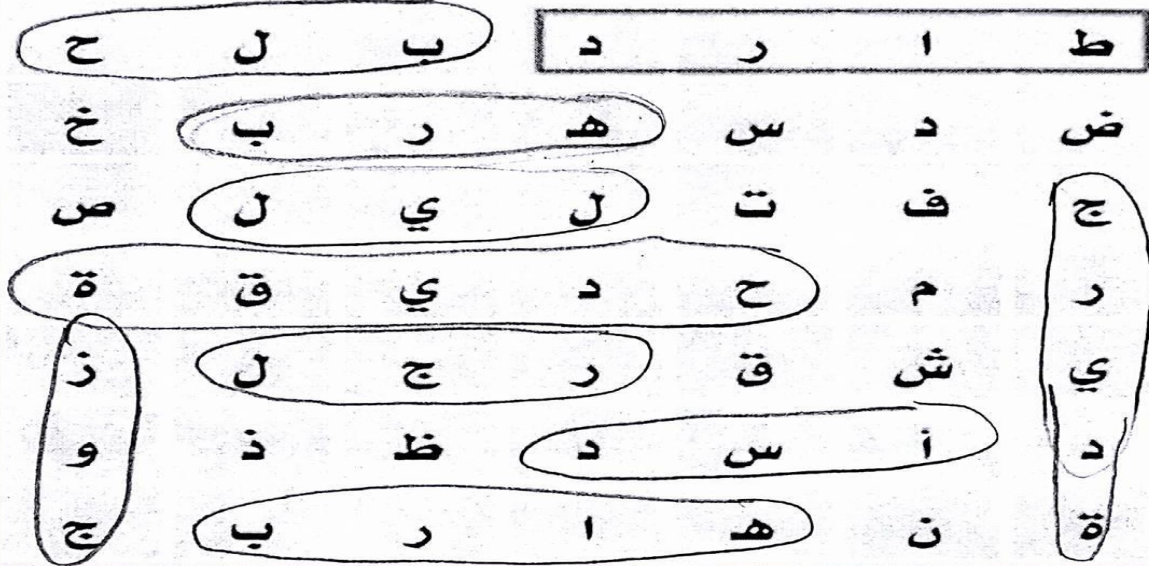 ط ا ر د ب ل ح
ض د س ه ر ب خ
ج ف ت ل ي ل ص
ر م ح د ي ق ة
ي ش ق ر ج ل ز
د أ س د ظ ذ و
ة ن ه ا ر ب ج